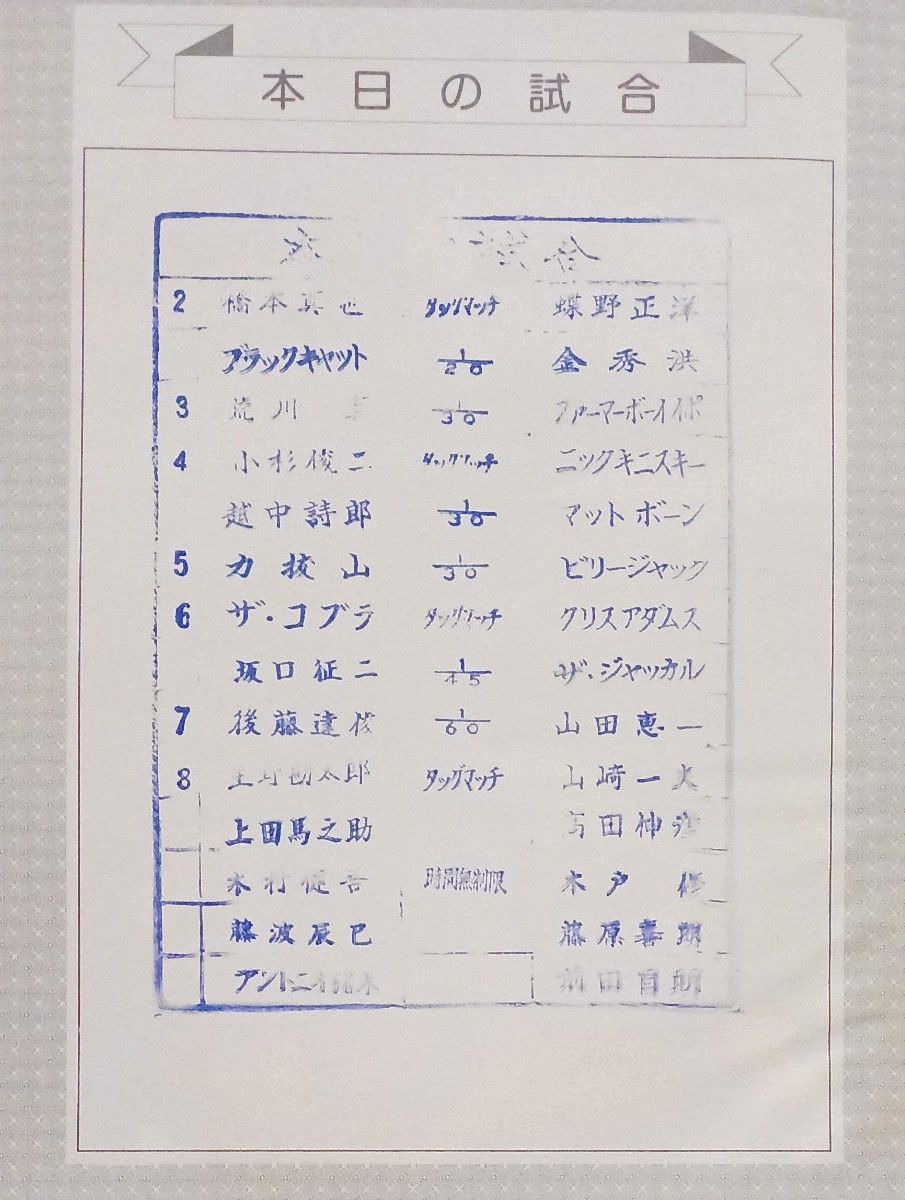 本日の試合
2 橋本真也 タッグマッチ 蝶野正洋
ブラックキャット 1/20 金秀洪
3 荒川 1/30 ファーマーボーイイポ
4 小杉俊二 タッグマッチ ニックキニスキー
越中詩郎 1/30 マットボーン
5 力抜山 1/30 ビリージャック
6 ザ・コブラ タッグマッチ クリスアダムス
坂口征二 1/45 ザ・ジャッカル
7 後藤達俊 1/60 山田恵一
8 上野勘太郎 タッグマッチ 山崎一夫
上田馬之助 高田伸彦
木村健吾 時間無制限 木戸修
藤波辰巳 藤原喜明
アントニオ猪木 前田日明